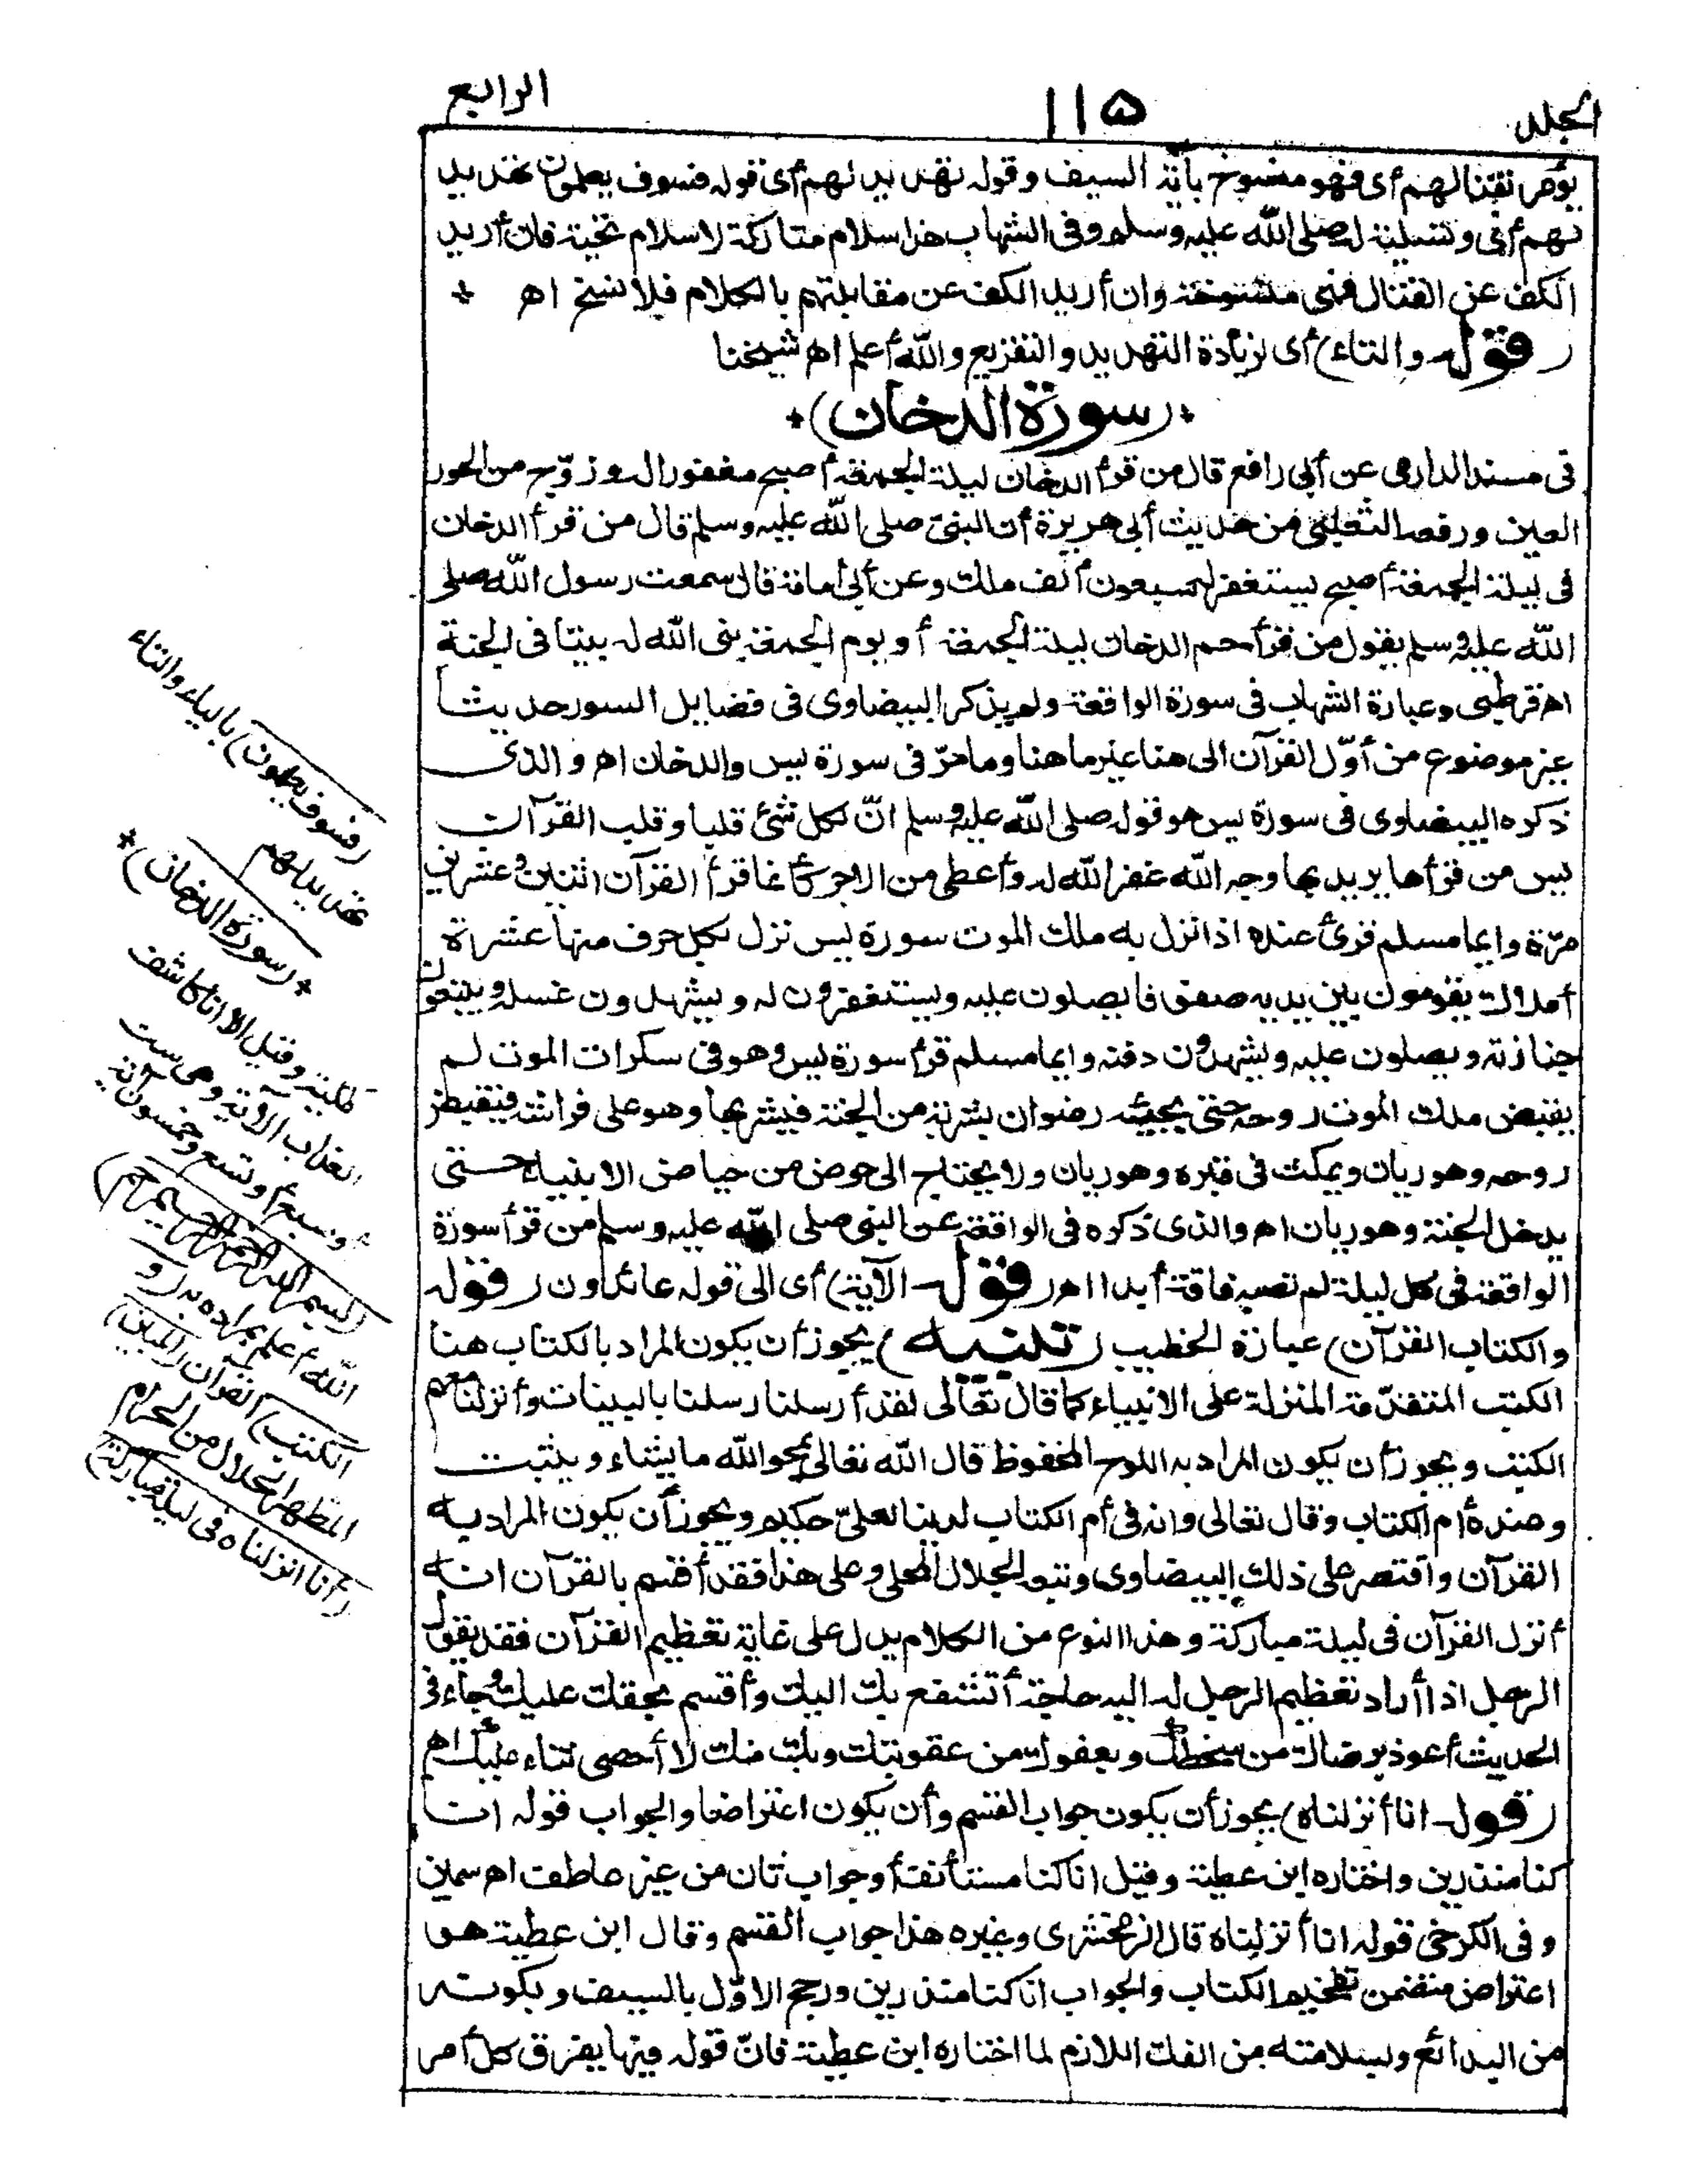 المجلد ١١٥ الرابع
يؤمر بقتالهم أى فهو منسوخ بآية السيف وقوله تهديد لهم أى قوله فسوف يعلمون تهديد
لهم أى وتسلية له صلى الله عليه وسلم وفى الشهاب هذا سلام متاركة لا سلام تحية فان أريد
الكف عن القتال فهى منسوخة وان أريد الكف عن مقابلتهم بالكلام فلا نسخ اه *
(قوله والتاء) أى لزيادة التهديد والتقريع والله أعلم اه شيخنا
*(سورة الدخان)*
فى مسند الدارمى عن أبى رافع قال من قرأ الدخان ليلة الجمعة أصبح مغفورا له وزوّج من الحور
العين ورفعه الثعلبى من حديث أبى هريرة أن النبى صلى الله عليه وسلم قال من قرأ الدخان
فى ليلة الجمعة أصبح يستغفر له سبعون ألف ملك وعن أبى أمامة قال سمعت رسول الله صلى
الله عليه وسلم يقول من قرأ حم الدخان ليلة الجمعة أو يوم الجمعة بنى الله له بيتا فى الجنة
اه قرطبى وعبارة الشهاب فى سورة الواقعة ولم يذكر البيضاوى فى فضايل السور حديثا
غير موضوع من أوّل القرآن الى هنا غير ما هنا وما مرّ فى سورة يس والدخان اه والذى
ذكره البيضاوى فى سورة يس هو قوله صلى الله عليه وسلم انّ لكل شئ قلبا وقلب القرآن
يس من قرأها يريد بها وجه الله غفر الله له وأعطى من الاجر كأنما قرأ القرآن اثنين وعشرين
مرّة وايما مسلم قرئ عنده اذا نزل به ملك الموت سورة يس نزل بكل حرف منها عشرة
أملاك يقومون بين يديه صفوفا يصلون عليه ويستغفرون له ويشهدون غسله ويتبعون
جنازته ويصلون عليه ويشهدون دفنه وايما مسلم قرأ سورة يس وهو فى سكرات الموت لم
يقبض ملك الموت روحه حتى يجيئه رضوان بشربة من الجنة فيشربها وهو على فراشه فيقبض
روحه وهو ريان ويمكث فى قبره وهو ريان ولا يحتاج الى حوض من حياض الانبياء حتى
يدخل الجنة وهو ريان اه والذى ذكره فى الواقعة عن النبى صلى الله عليه وسلم من قرأ سورة
الواقعة فى كل ليلة لم تصبه فاقة أبدا اه (قوله الآية) أى الى قوله عائدون (قوله
والكتاب القرآن) عبارة الخطيب (تنبيه) يجوز أن يكون المراد بالكتاب هنا
الكتب المتقدّمة المنزلة على الانبياء كما قال تعالى لقد أرسلنا رسلنا بالبينات وأنزلنا معهم
الكتب ويجوز أن يكون المراد به اللوح المحفوظ قال الله تعالى يمحو الله ما يشاء ويثبت
وعنده أم الكتاب وقال تعالى وانه فى أم الكتاب لدينا لعلىّ حكيم ويجوز أن يكون المراد به
القرآن واقتصر على ذلك البيضاوى وتبعه الجلال المحلى وعلى هذا فقد أقسم بالقرآن انه
أنزل القرآن فى ليلة مباركة وهذا النوع من الكلام يدل على غاية تعظيم القرآن فقد يقول
الرجل اذا أراد تعظيم الرجل له اليه حاجة أتشفع بك اليك وأقسم بحقك عليك وجاء فى
الحديث أعوذ برضاك من سخطك وبعفوك من عقوبتك وبك منك لا أحصى ثناء عليك اه
(قوله انا أنزلناه) يجوز أن يكون جواب القسم وأن يكون اعتراضا والجواب قوله انا
كنا منذرين واختاره ابن عطية وقيل انا كنا مستأنفة أو جواب ثان من غير عاطف اه سمين
وفى الكرخى قوله انا أنزلناه قال الزمخشرى وغيره هذا جواب القسم وقال ابن عطية هو
اعتراض متضمن تفخيم الكتاب والجواب انا كنا منذرين ورجح الاوّل بالسبق وبكونه
من البدائع وبسلامته من الفك اللازم لما اختاره ابن عطية فانّ قوله فيها يفرق كل أمر
(فسوف يعلمون) بالياء والتاء
تهديد لهم
*(سورة الدخان)*
مكية وقيل الا انا كاشفوا
العذاب الآية وهى ست
أو سبع أو تسع وخمسون آية
(بسم الله الرحمن الرحيم حم)
الله أعلم بمراده به (و
الكتب) القرآن (المبين)
المظهر الحلال من الحرام
(انا انزلناه فى ليلة مباركة)